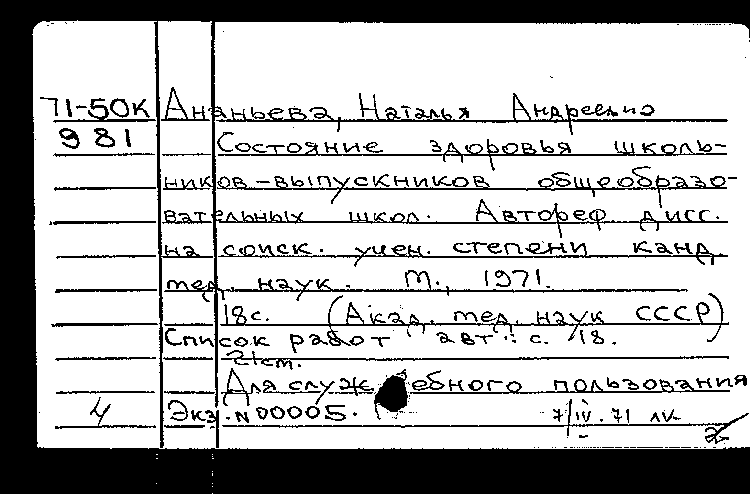 71-50К Ананьева, Наталья Андреевна
981 Состояние здоровья школь-
ников-выпускников общеобразо-
вательных школ. Автореф дисс.
на соиск. учен. степени канд.
мед. наук. М., 1971.
18с. (Акад. мед. наук СССР)
Список работ авт.: с. 18.
21см.
Для служебного пользования
4 Экз. N 00005. 7/IV.71 лк
2